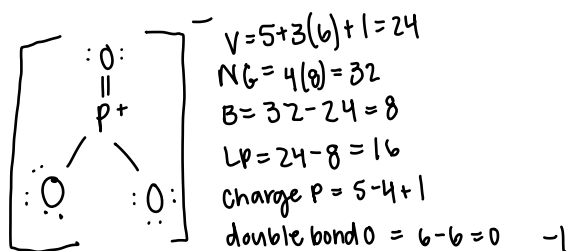 V=5+3(6)+1=24
NG= 4(8)=32
B= 32-24=8
LP=24-8=16
charge P = 5-4+1
double bond O = 6-6=0 -1
:O:
P+
:O :O:
−